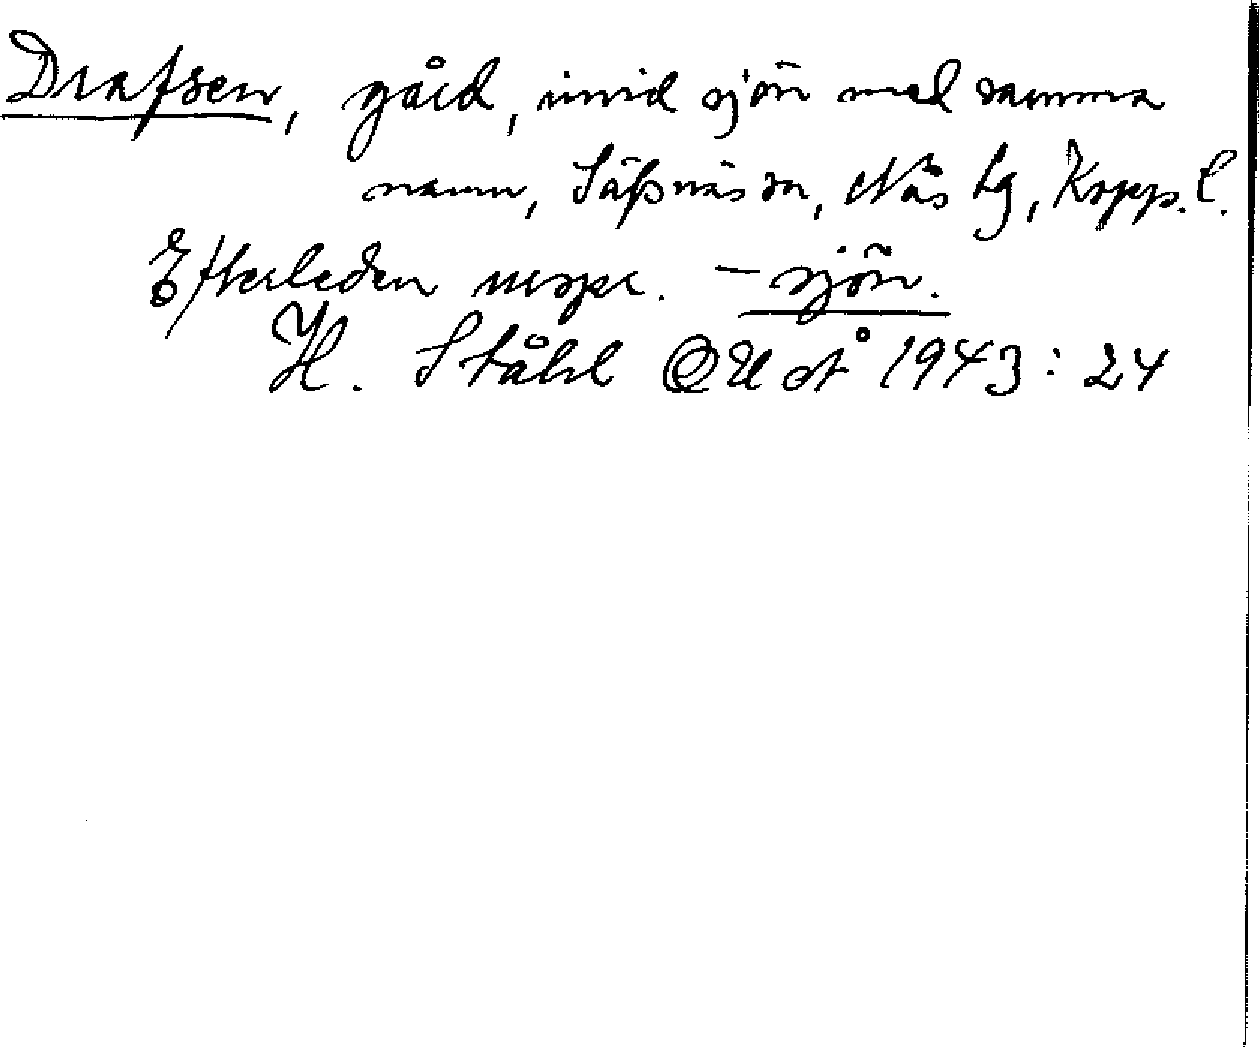 Drafsen, gård, invid sjön med samma
namn, Säfsnäs sn, Näs hg, Kopp. l.
Efterleden urspr. –sjön.
H. Ståhl OUÅ 1943: 24